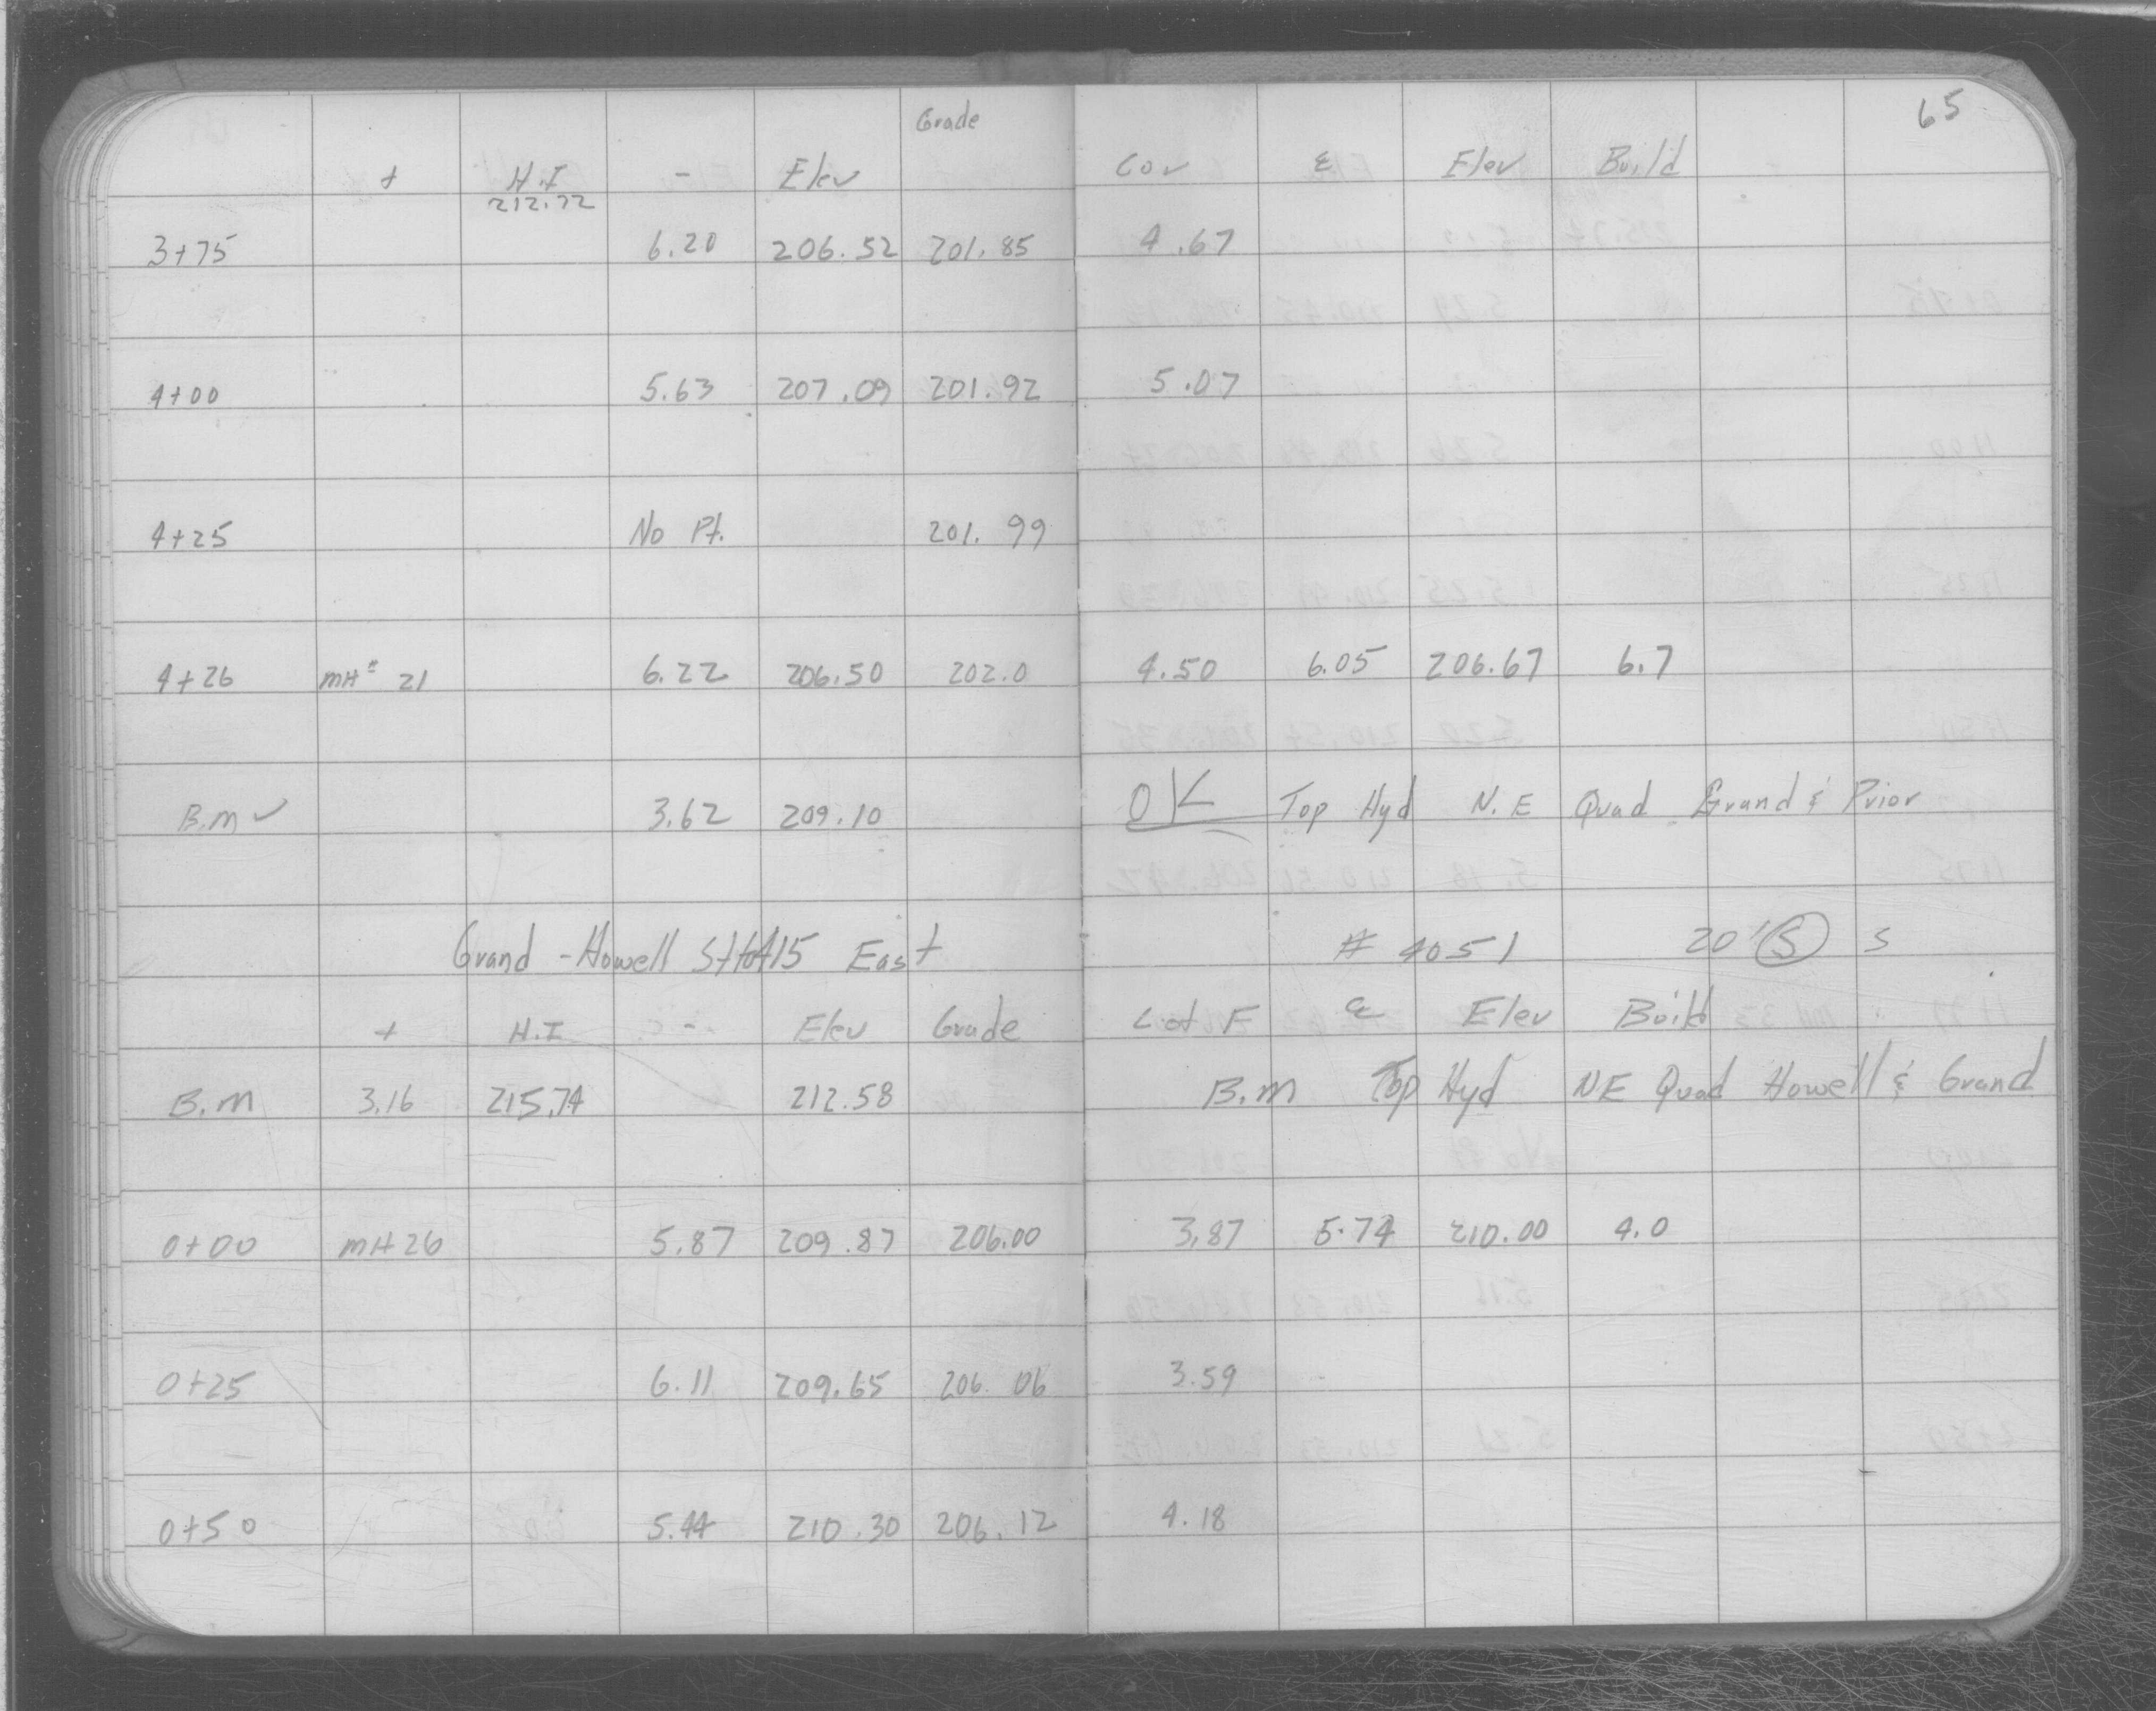 65
Grade
+ H.I - Elev Cov ℄ Elev Build
212.72
3+75 6.20 206.52 201.85 4.67
4+00 5.63 207.09 201.92 5.07
4+25 No Pt. 201.99
4+26 MH# 21 6.22 206.50 202.0 4.50 6.05 206.67 6.7
B.M ✓ 3.62 209.10 OK Top Hyd N.E Quad Grand & Prior
Grand - Howell St to 415 East # 4051 20' Ⓢ S
+ H.I - Elev Grade Cot F ℄ Elev Build
B.M 3.16 215.74 212.58 B.M Top Hyd NE Quad Howell & Grand
0+00 MH 26 5.87 209.87 206.00 3.87 5.74 210.00 4.0
0+25 6.11 209.65 206.06 3.59
0+50 5.44 210.30 206.12 4.18